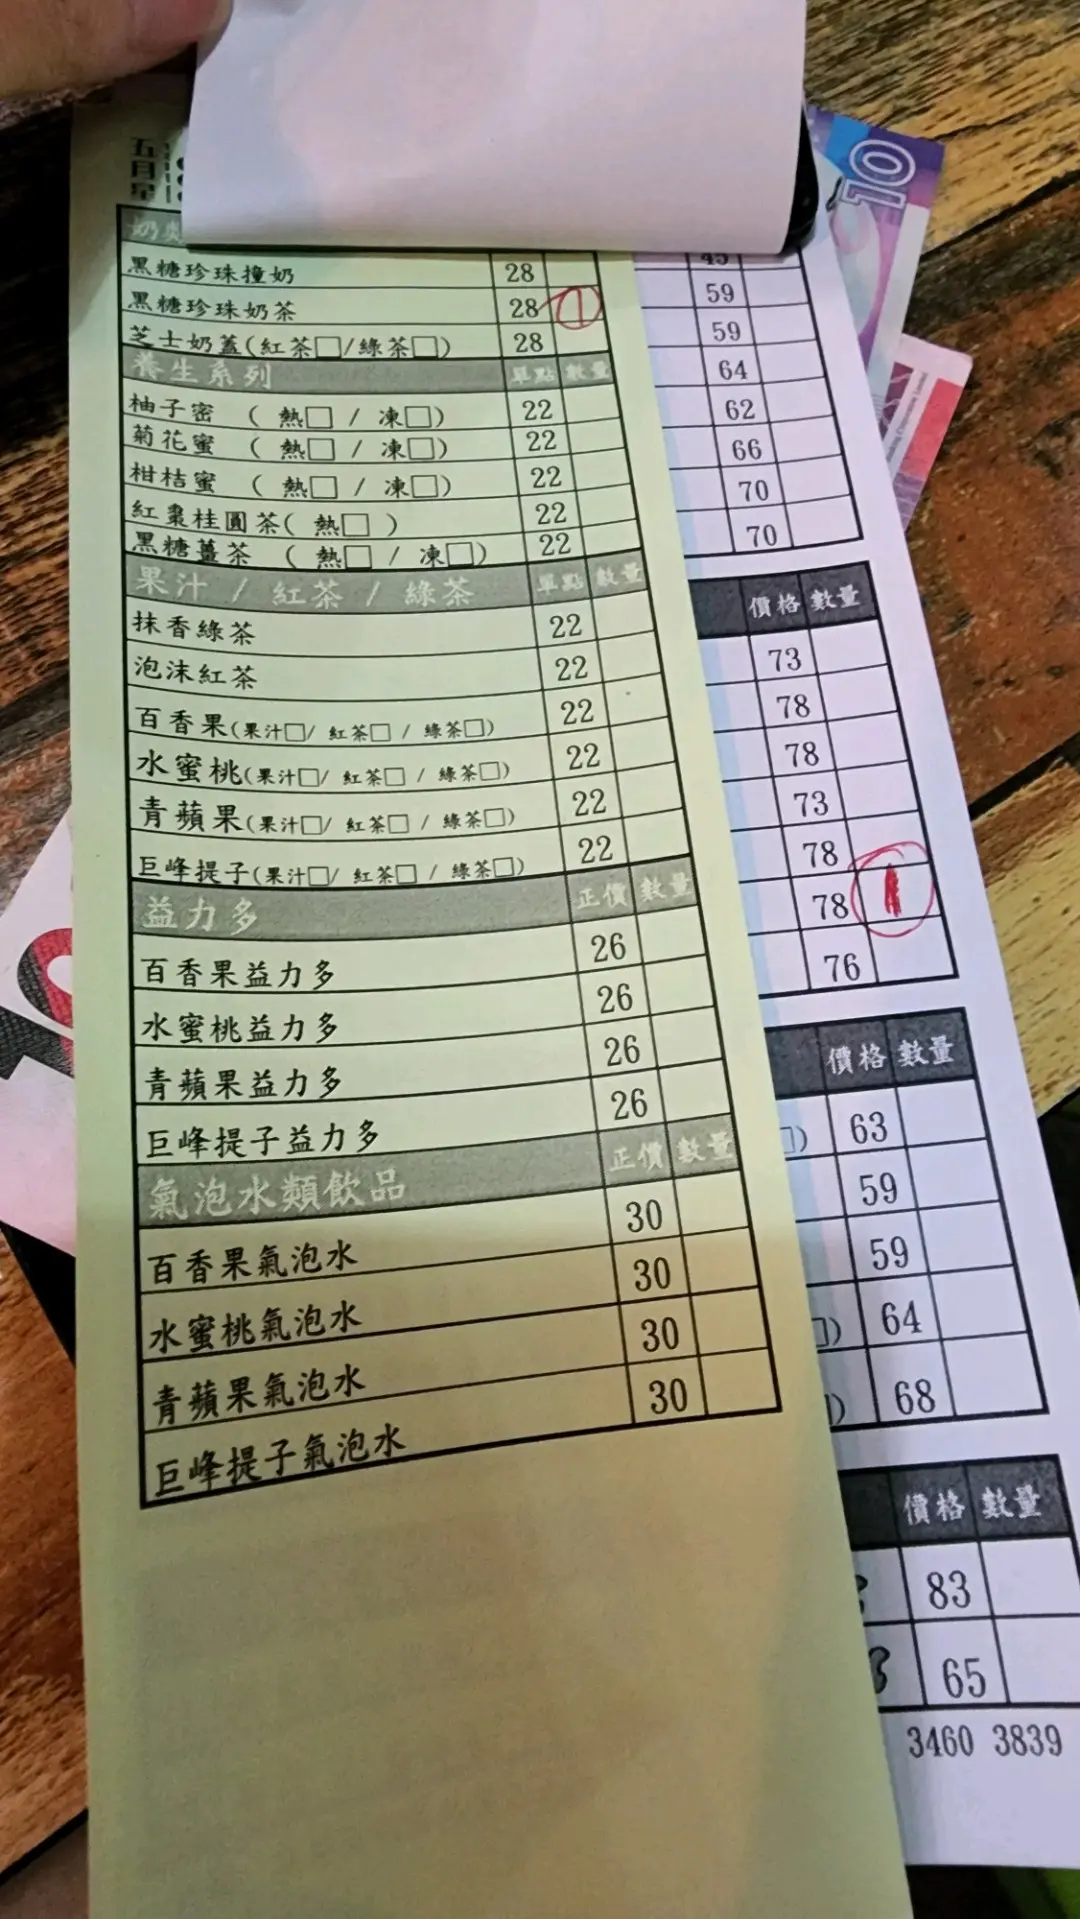 五月星
奶
黑糖珍珠撞奶 28
黑糖珍珠奶茶 28 1
芝士奶蓋(紅茶□/綠茶□) 28
養生系列 單點 數量
柚子密 ( 熱□ / 凍□) 22
菊花蜜 ( 熱□ / 凍□) 22
柑桔蜜 ( 熱□ / 凍□) 22
紅棗桂圓茶( 熱□ ) 22
黑糖薑茶 ( 熱□ / 凍□) 22
果汁 / 紅茶 / 綠茶 單點 數量
抹香綠茶 22
泡沫紅茶 22
百香果(果汁□/ 紅茶□ / 綠茶□) 22
水蜜桃(果汁□/ 紅茶□ / 綠茶□) 22
青蘋果(果汁□/ 紅茶□ / 綠茶□) 22
巨峰提子(果汁□/ 紅茶□ / 綠茶□) 22
益力多 正價 數量
百香果益力多 26
水蜜桃益力多 26
青蘋果益力多 26
巨峰提子益力多 26
氣泡水類飲品 正價 數量
百香果氣泡水 30
水蜜桃氣泡水 30
青蘋果氣泡水 30
巨峰提子氣泡水 30
10
45
59
59
64
62
66
70
70
價格 數量
73
78
78
73
78
78 1
76
價格 數量
□) 63
59
59
□) 64
) 68
價格 數量
83
65
3460 3839